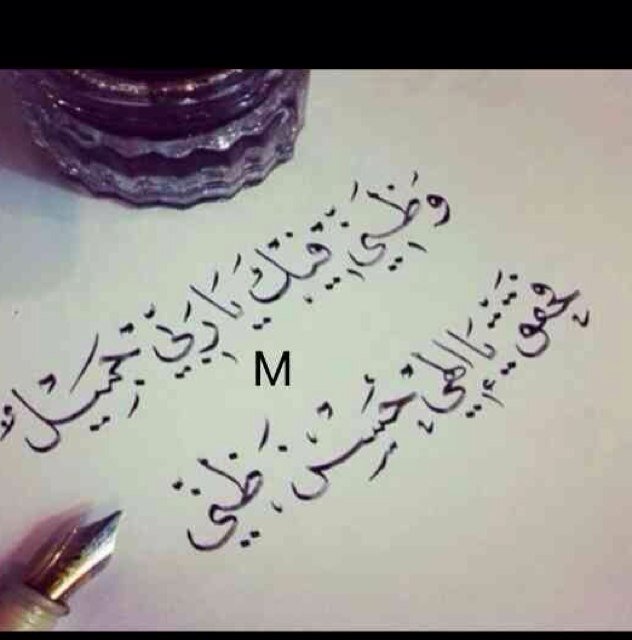 وَظَنِّي فِيكَ يَا رَبِّي جَمِيلٌ
M
فَحَقِّقْ يَا إِلٰهِي حُسْنَ ظَنِّي